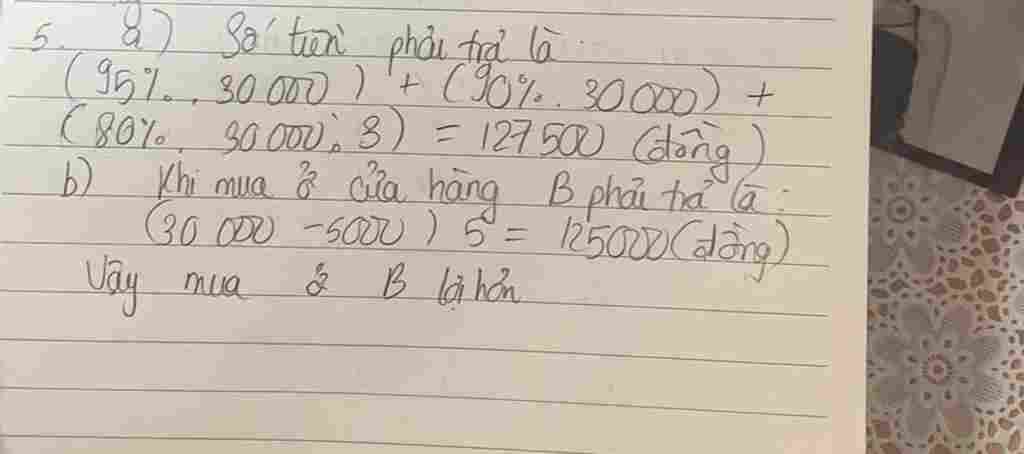 5. a) Số tiền phải trả là:
(95%. 30 000) + (90%. 30 000) +
(80%. 30 000. 3) = 127 500 (đồng)
b) Khi mua ở cửa hàng B phải trả là:
(30 000 - 5000) 5 = 125000 (đồng)
Vậy mua ở B lợi hơn